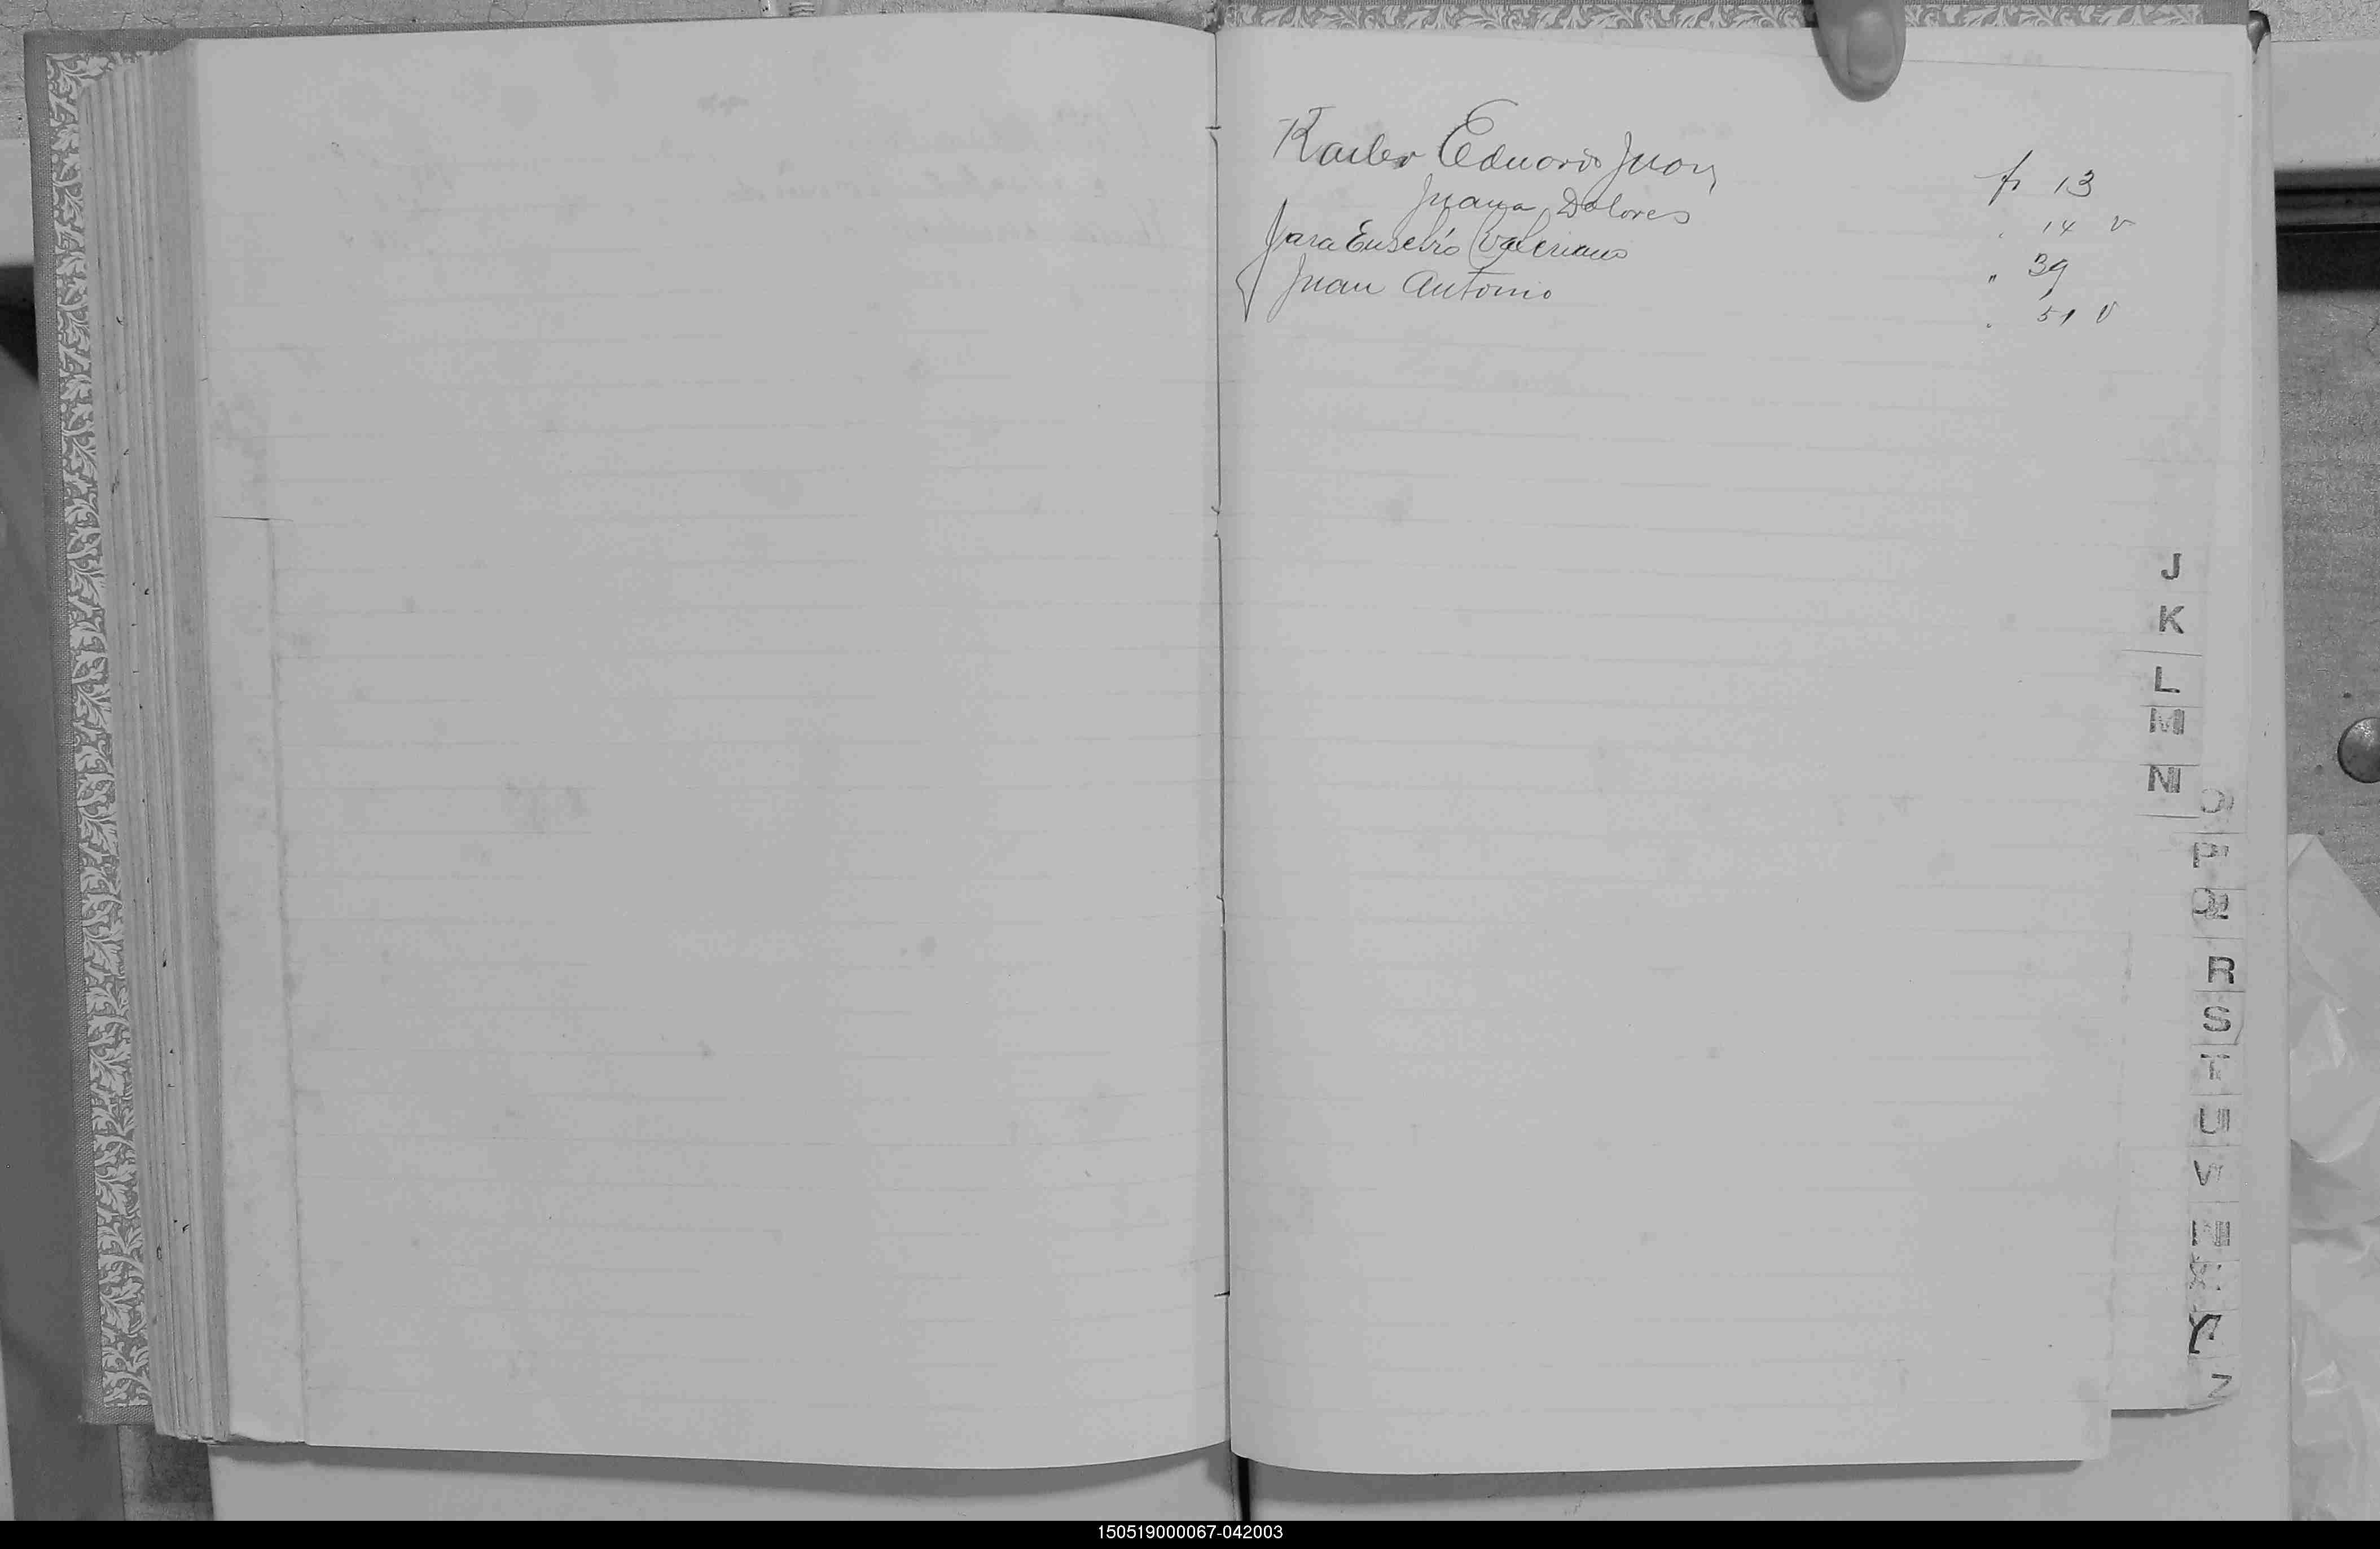 Eduardo Juan fs 13
Juana Dolores " 14 v
Jara Eusebio Valeriano " 39
Juan Antonio " 51 v
J
K
L
M
N
O
P
Q
R
S
T
U
V
X
Y
Z
150519000067-042003